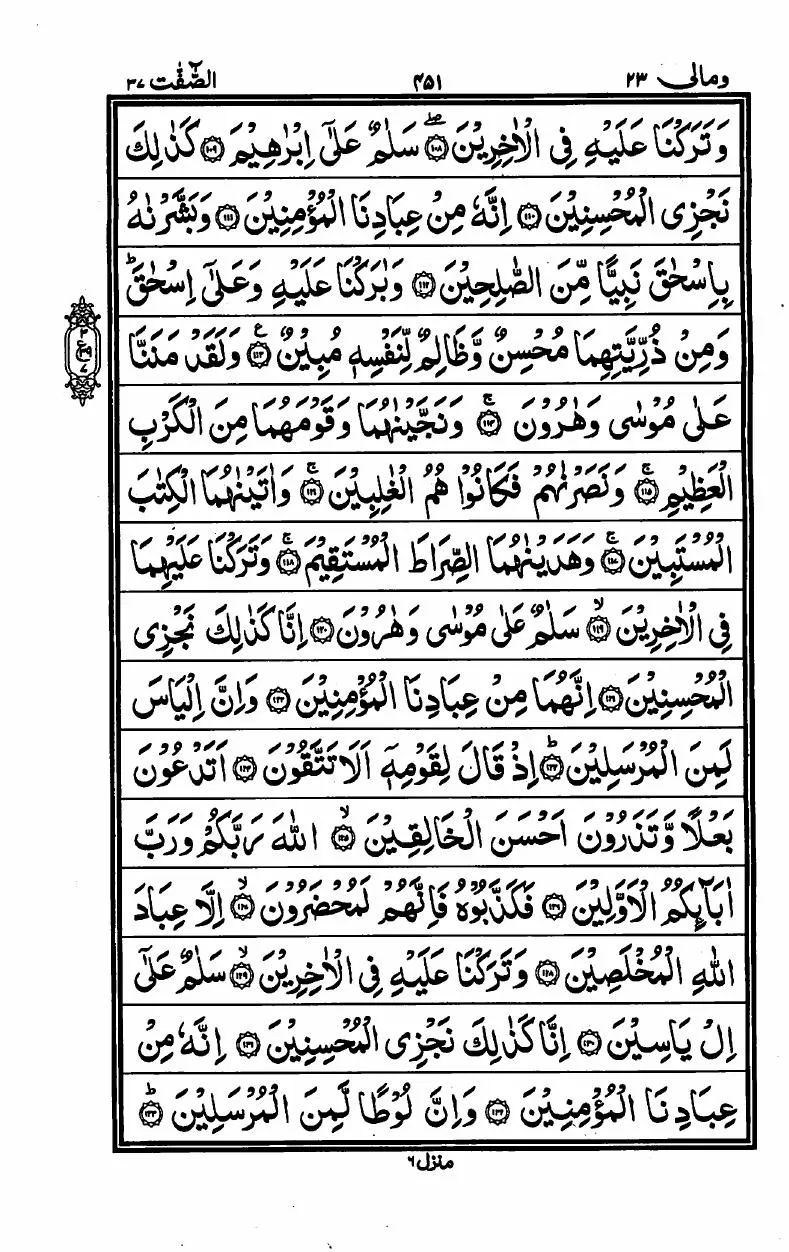 ومالی ۲۳ ۴۵۱ الصّٰٓفّٰت ۳۷
وَتَرَكْنَا عَلَيْهِ فِى الْاٰخِرِيْنَ ۖ‏﴿۱۰۸﴾ سَلٰمٌ عَلٰٓى اِبْرٰهِيْمَ ﴿۱۰۹﴾ كَذٰلِكَ
نَجْزِى الْمُحْسِنِيْنَ ﴿۱۱۰﴾ اِنَّهٗ مِنْ عِبَادِنَا الْمُؤْمِنِيْنَ ﴿۱۱۱﴾ وَبَشَّرْنٰهُ
بِاِسْحٰقَ نَبِيًّا مِّنَ الصّٰلِحِيْنَ ﴿۱۱۲﴾ وَبٰرَكْنَا عَلَيْهِ وَعَلٰٓى اِسْحٰقَ ؕ
وَمِنْ ذُرِّيَّتِهِمَا مُحْسِنٌ وَّظَالِمٌ لِّنَفْسِهٖ مُبِيْنٌ ﴿۱۱۳﴾ ع وَلَقَدْ مَنَنَّا
عَلٰى مُوْسٰى وَهٰرُوْنَ ۚ‏﴿۱۱۴﴾ وَنَجَّيْنٰهُمَا وَقَوْمَهُمَا مِنَ الْكَرْبِ
الْعَظِيْمِ ۚ‏﴿۱۱۵﴾ وَنَصَرْنٰهُمْ فَكَانُوْا هُمُ الْغٰلِبِيْنَ ۚ‏﴿۱۱۶﴾ وَاٰتَيْنٰهُمَا الْكِتٰبَ
الْمُسْتَبِيْنَ ۚ‏﴿۱۱۷﴾ وَهَدَيْنٰهُمَا الصِّرَاطَ الْمُسْتَقِيْمَ ۚ‏﴿۱۱۸﴾ وَتَرَكْنَا عَلَيْهِمَا
فِى الْاٰخِرِيْنَ ۙ‏﴿۱۱۹﴾ سَلٰمٌ عَلٰى مُوْسٰى وَهٰرُوْنَ ﴿۱۲۰﴾ اِنَّا كَذٰلِكَ نَجْزِى
الْمُحْسِنِيْنَ ﴿۱۲۱﴾ اِنَّهُمَا مِنْ عِبَادِنَا الْمُؤْمِنِيْنَ ﴿۱۲۲﴾ وَاِنَّ اِلْيَاسَ
لَمِنَ الْمُرْسَلِيْنَ ؕ‏﴿۱۲۳﴾ اِذْ قَالَ لِقَوْمِهٖۤ اَلَا تَتَّقُوْنَ ﴿۱۲۴﴾ اَتَدْعُوْنَ
بَعْلًا وَّتَذَرُوْنَ اَحْسَنَ الْخَالِقِيْنَ ۙ‏﴿۱۲۵﴾ اللّٰهَ رَبَّكُمْ وَرَبَّ
اٰبَآئِكُمُ الْاَوَّلِيْنَ ﴿۱۲۶﴾ فَكَذَّبُوْهُ فَاِنَّهُمْ لَمُحْضَرُوْنَ ۙ‏﴿۱۲۷﴾ اِلَّا عِبَادَ
اللّٰهِ الْمُخْلَصِيْنَ ﴿۱۲۸﴾ وَتَرَكْنَا عَلَيْهِ فِى الْاٰخِرِيْنَ ۙ‏﴿۱۲۹﴾ سَلٰمٌ عَلٰٓى
اِلْ يَاسِيْنَ ﴿۱۳۰﴾ اِنَّا كَذٰلِكَ نَجْزِى الْمُحْسِنِيْنَ ﴿۱۳۱﴾ اِنَّهٗ مِنْ
عِبَادِنَا الْمُؤْمِنِيْنَ ﴿۱۳۲﴾ وَاِنَّ لُوْطًا لَّمِنَ الْمُرْسَلِيْنَ ؕ‏﴿۱۳۳﴾
منزل ۶